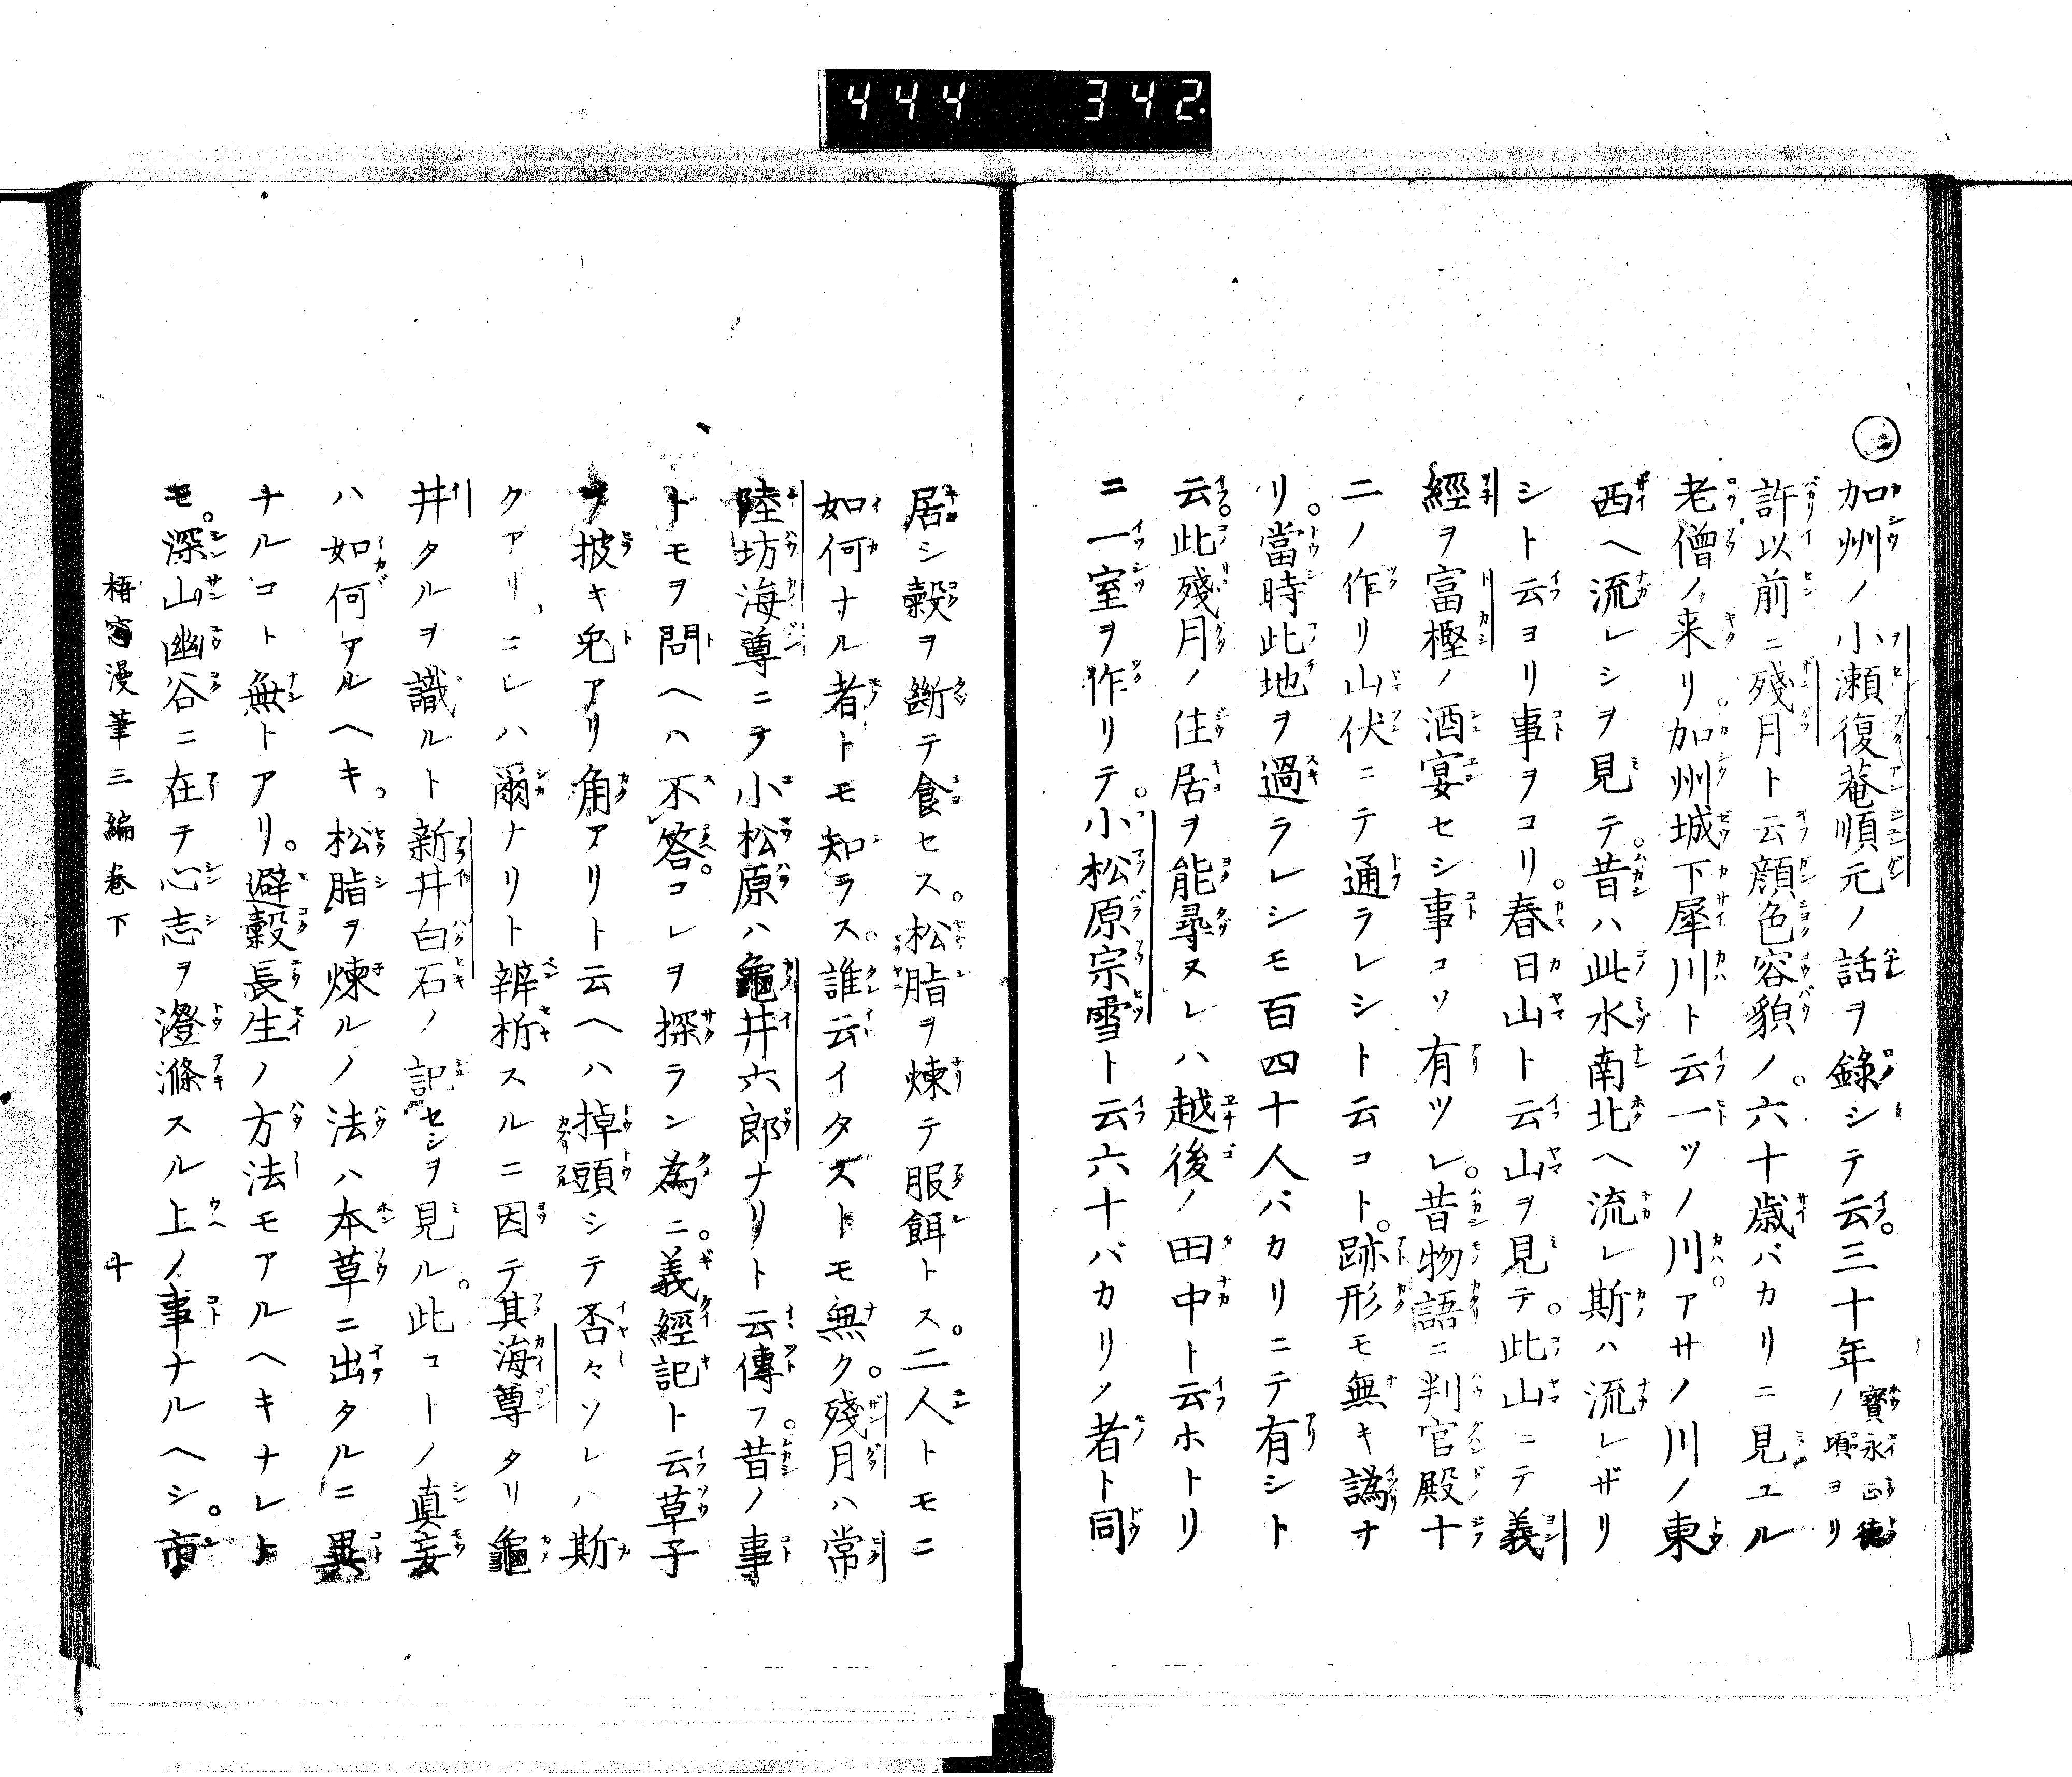 444 342.
加州ノ小瀬復菴順元ノ話ヲ錄シテ云。三十年ノ頃ヨリ
寳永正徳
許以前ニ殘月ト云顔色容貌ノ。六十歳バカリニ見ユル
老僧ノ来リ。加州城下犀川ト云一ツノ川アサノ川ノ東
西ヘ流レシヲ見テ。昔ハ此水南北ヘ流レ斯ハ流レザリ
シト云ヨリ事ヲコリ。春日山ト云山ヲ見テ。此山ニテ義
經ヲ富樫ノ酒宴セシ事コソ有ツレ。昔物語ニ判官殿十
二ノ作リ山伏ニテ通ラレシト云コト。跡形モ無キ譌ナ
リ。當時此地ヲ過ラレシモ百四十人バカリニテ有シト
云。此殘月ノ住居ヲ能尋ヌレハ越後ノ田中ト云ホトリ
ニ一室ヲ作リテ。小松原宗雪ト云六十バカリノ者ト同
居シ穀ヲ斷テ食セス。松脂ヲ煉テ服餌トス。二人トモニ
如何ナル者トモ知ラス。誰云イタストモ無ク。殘月ハ常
陸坊海尊ニテ小松原ハ龜井六郎ナリト云傳フ。昔ノ事
トモヲ問ヘハ不答。コレヲ探ラン為ニ。義經記ト云草子
ヲ披キ兎アリ角アリト云ヘハ掉頭シテ否々ソレハ斯
クアリ、コレハ爾ナリト辨析スルニ因テ其海尊タリ龜
井タルヲ識ルト新井白石ノ記セシヲ見ル。此コトノ真妄
ハ如何アルヘキ。松脂ヲ煉ルノ法ハ本草ニ出タルニ異
ナルコト無トアリ。避穀長生ノ方法モアルヘキナレト
モ。深山幽谷ニ在テ心志ヲ澄滌スル上ノ事ナルヘシ。市
梧窓漫筆三編巻下 十